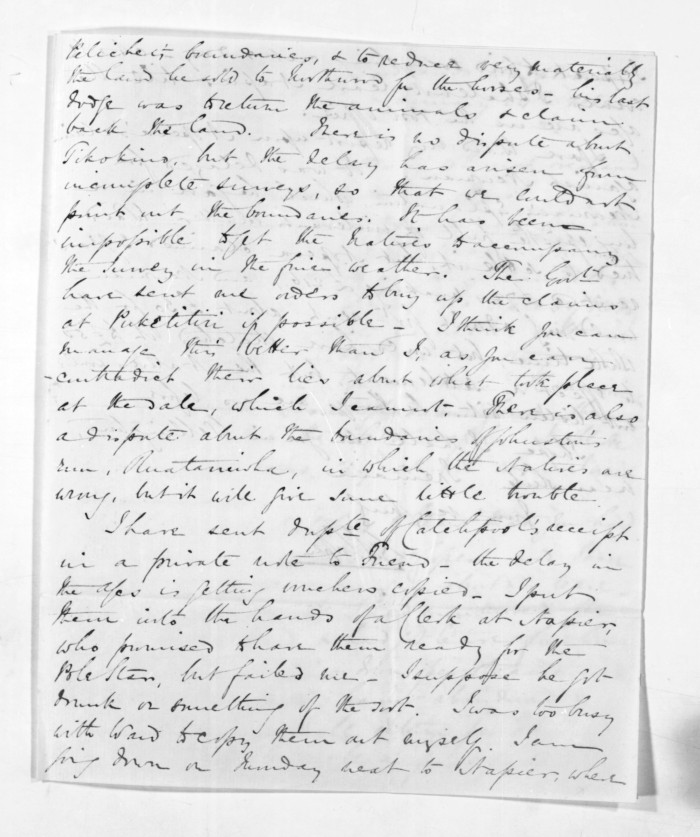 boundaries, & to reduce very materially
the land he sold to Northwood for the horses - his last
dodge was to return the animals & claim
back the land. There is no dispute about
Tikokino, but the delay has arisen from
incomplete surveys, so that we could not
point out the boundaries. It has been
impossible to get the Natives to accompany
the survey in the fine weather. The Govt.
have sent me orders to buy up the claims
at Puketitiri if possible - I think you can
manage this better than I, as you can
contradict their lies about what took place
at the sale, which I cannot. There is also
a dispute about the boundaries of Johnston's
run, in which the Natives are
wrong, but it will give some little trouble.
I have sent dupte of Catchpool's receipt
in a private note to Friend - the delay in
the is getting vouchers copied - I put
them into the hands of a Clerk at Napier,
who promised to have them ready for the
Pole Star, but failed me - I suppose he got
drunk or something of the sort. I was too busy
with Ward to copy them out myself. I am
going down on Sunday next to Napier, when